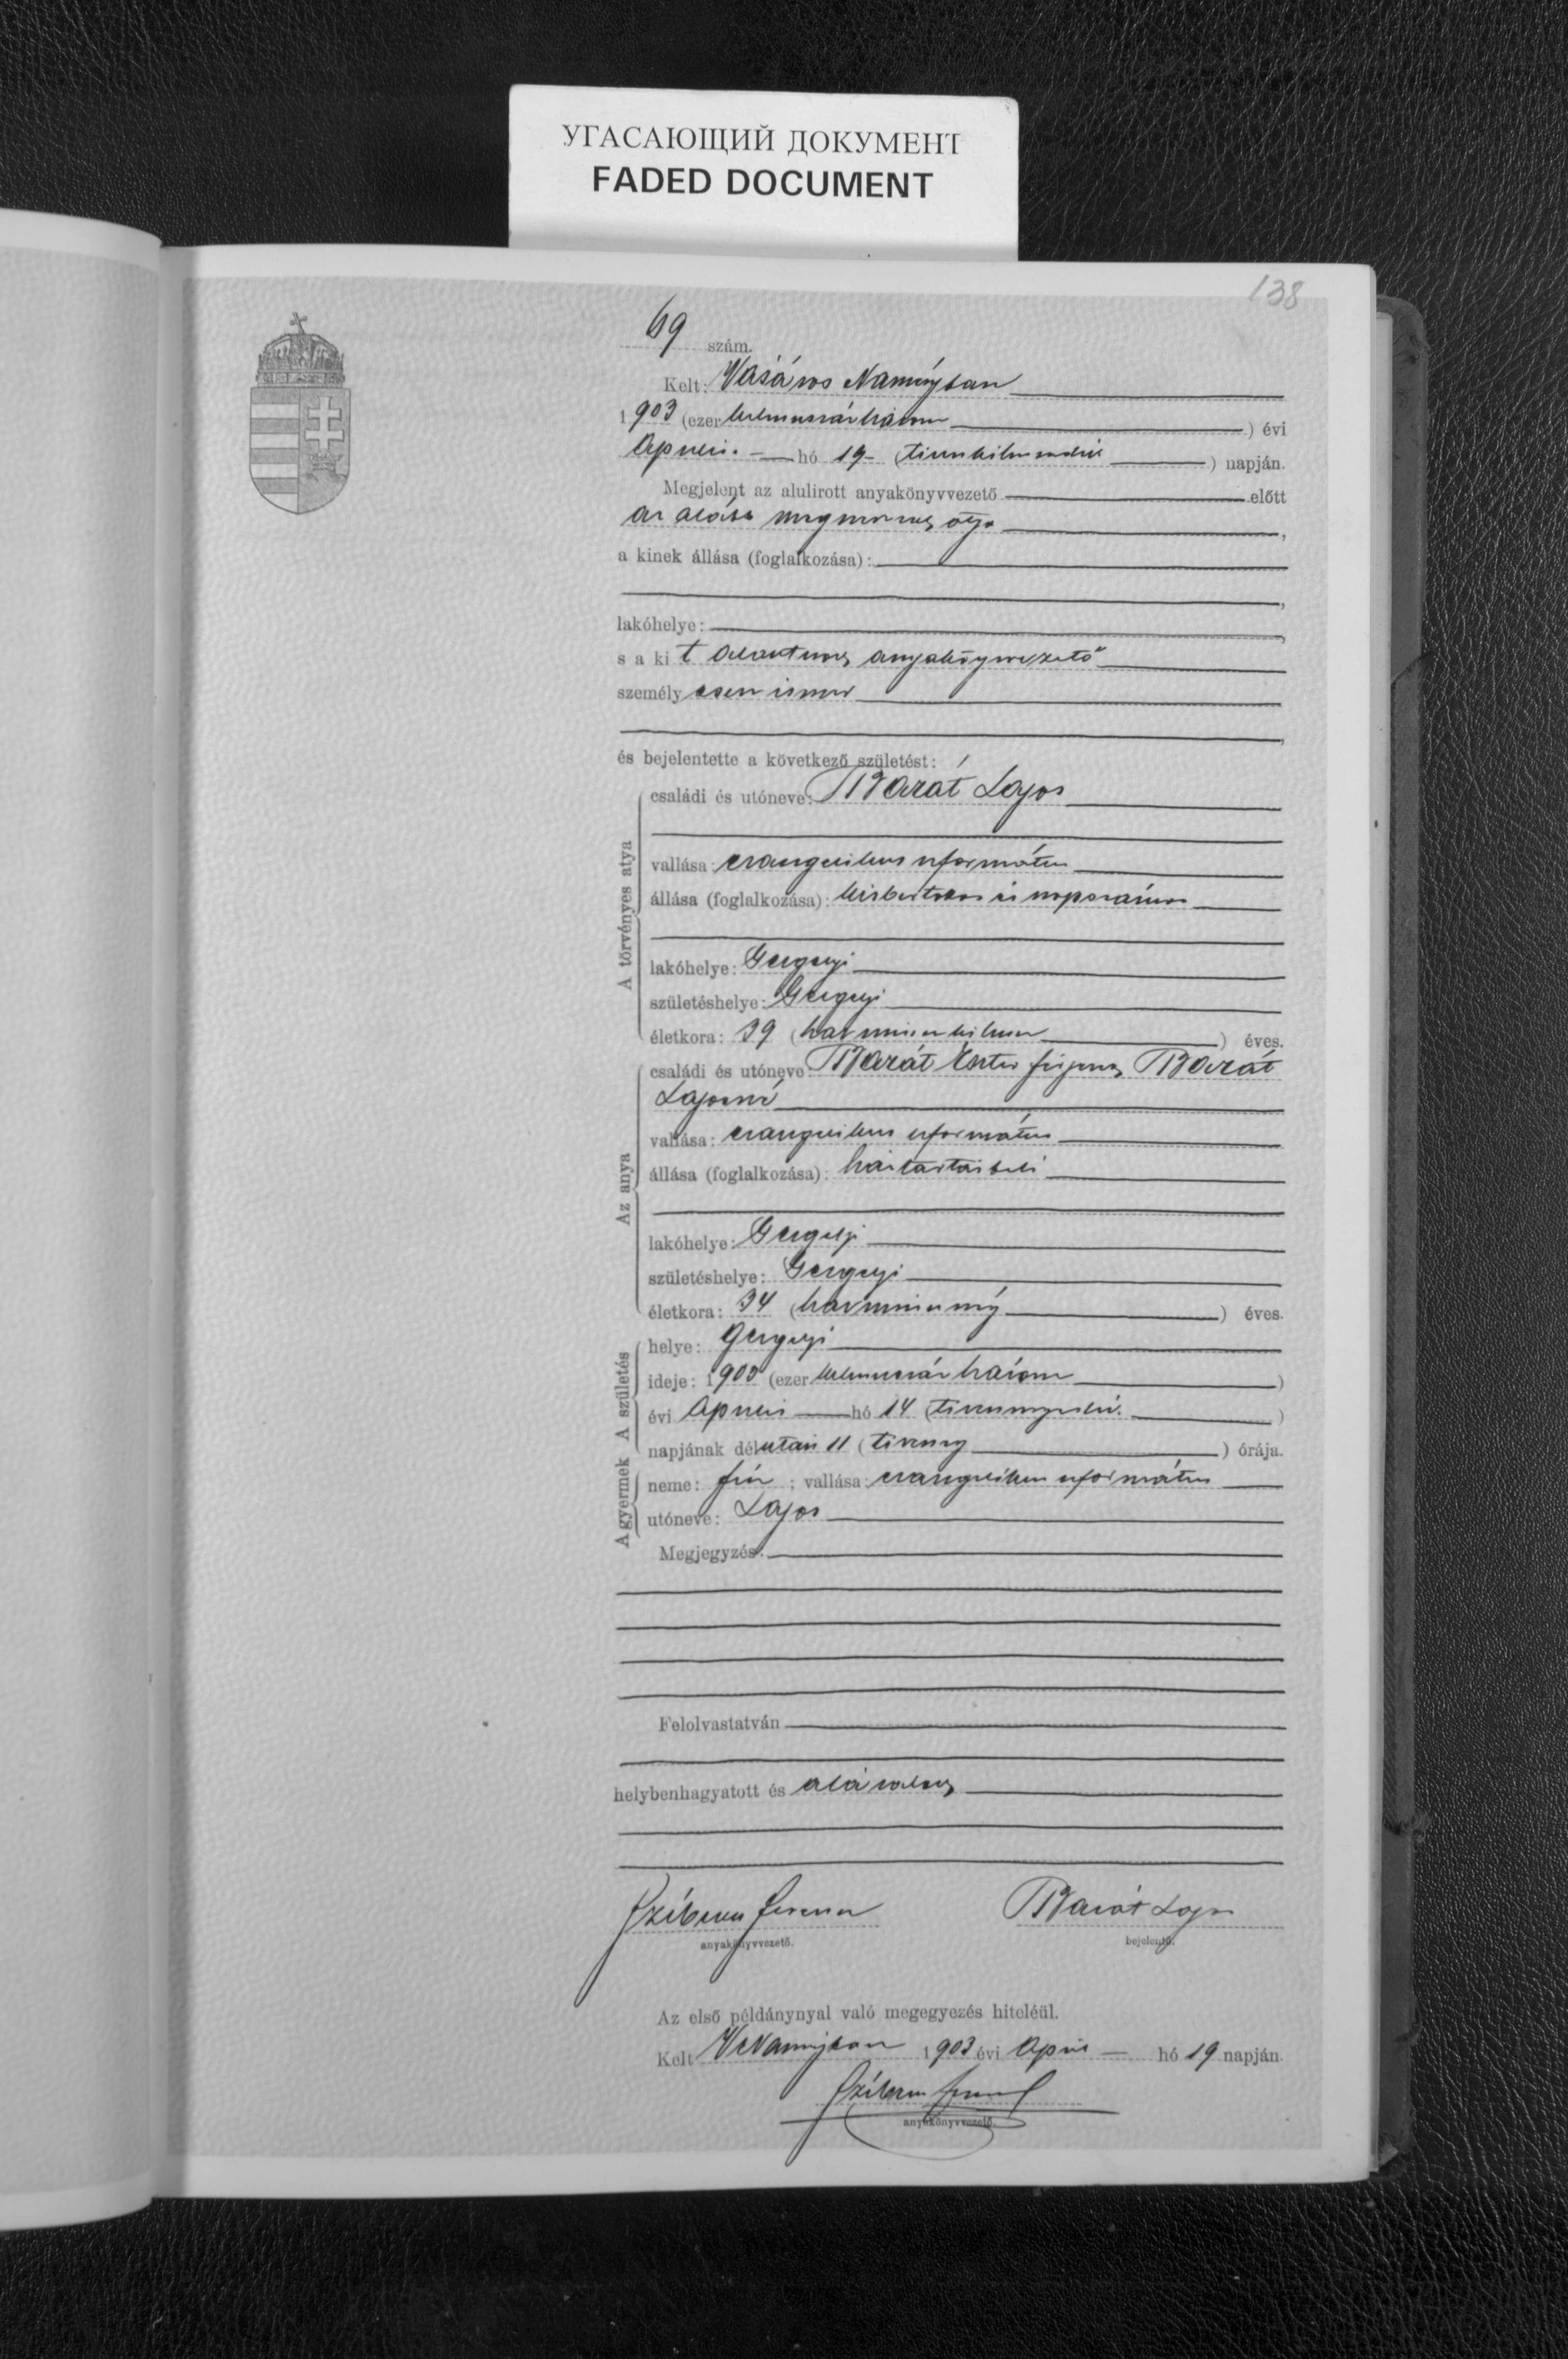 УГАСАЮЩИЙ ДОКУМЕНТ
FADED DOCUMENT
138
69 szám.
Kelt: Vásáros Naményban
1903 (ezer kilenczszázhárom) évi
április hó 19 (tizenkilenczedik) napján.
Megjelent az alulirott anyakönyvvezető előtt
az alább megnevezett atya,
a kinek állása (foglalkozása):
lakóhelye:
s a kit alantirott anyakönyvvezető
személyesen ismer
és bejelentette a következő születést:
A törvényes atya
családi és utóneve: Barát Lajos
vallása: evangelikus református
állása (foglalkozása): kisbirtokos és napszámos
lakóhelye: Gergelyi
születéshelye: Gergelyi
életkora: 39 (harminczkilencz) éves.
Az anya
családi és utóneve: Barát Eszter férjezett Barát
Lajosné
vallása: evangelikus református
állása (foglalkozása): háztartásbeli
lakóhelye: Gergelyi
születéshelye: Gergelyi
életkora: 34 (harmincznégy) éves.
A születés
helye: Gergelyi
ideje: 1903 (ezer kilenczszázhárom)
évi április hó 14 (tizennegyedik)
napjának délután 11 (tizenegy) órája.
A gyermek
neme: fiú; vallása: evangelikus református
utóneve: Lajos
Megjegyzés:
Felolvastatván
helybenhagyatott és aláíratott
Barát Lajos
anyakönyvvezető. bejelentő.
Az első példánynyal való megegyezés hiteléül.
Kelt VNaményban 1903 évi április hó 19 napján.
anyakönyvvezető.